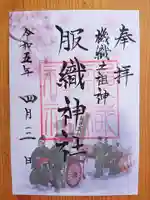 奉拝
機織土祖神
服織神社
令和五年 四月二日